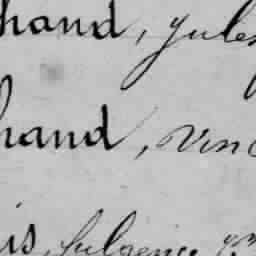 hand, Jules
hand, Vinc
is, fulgence